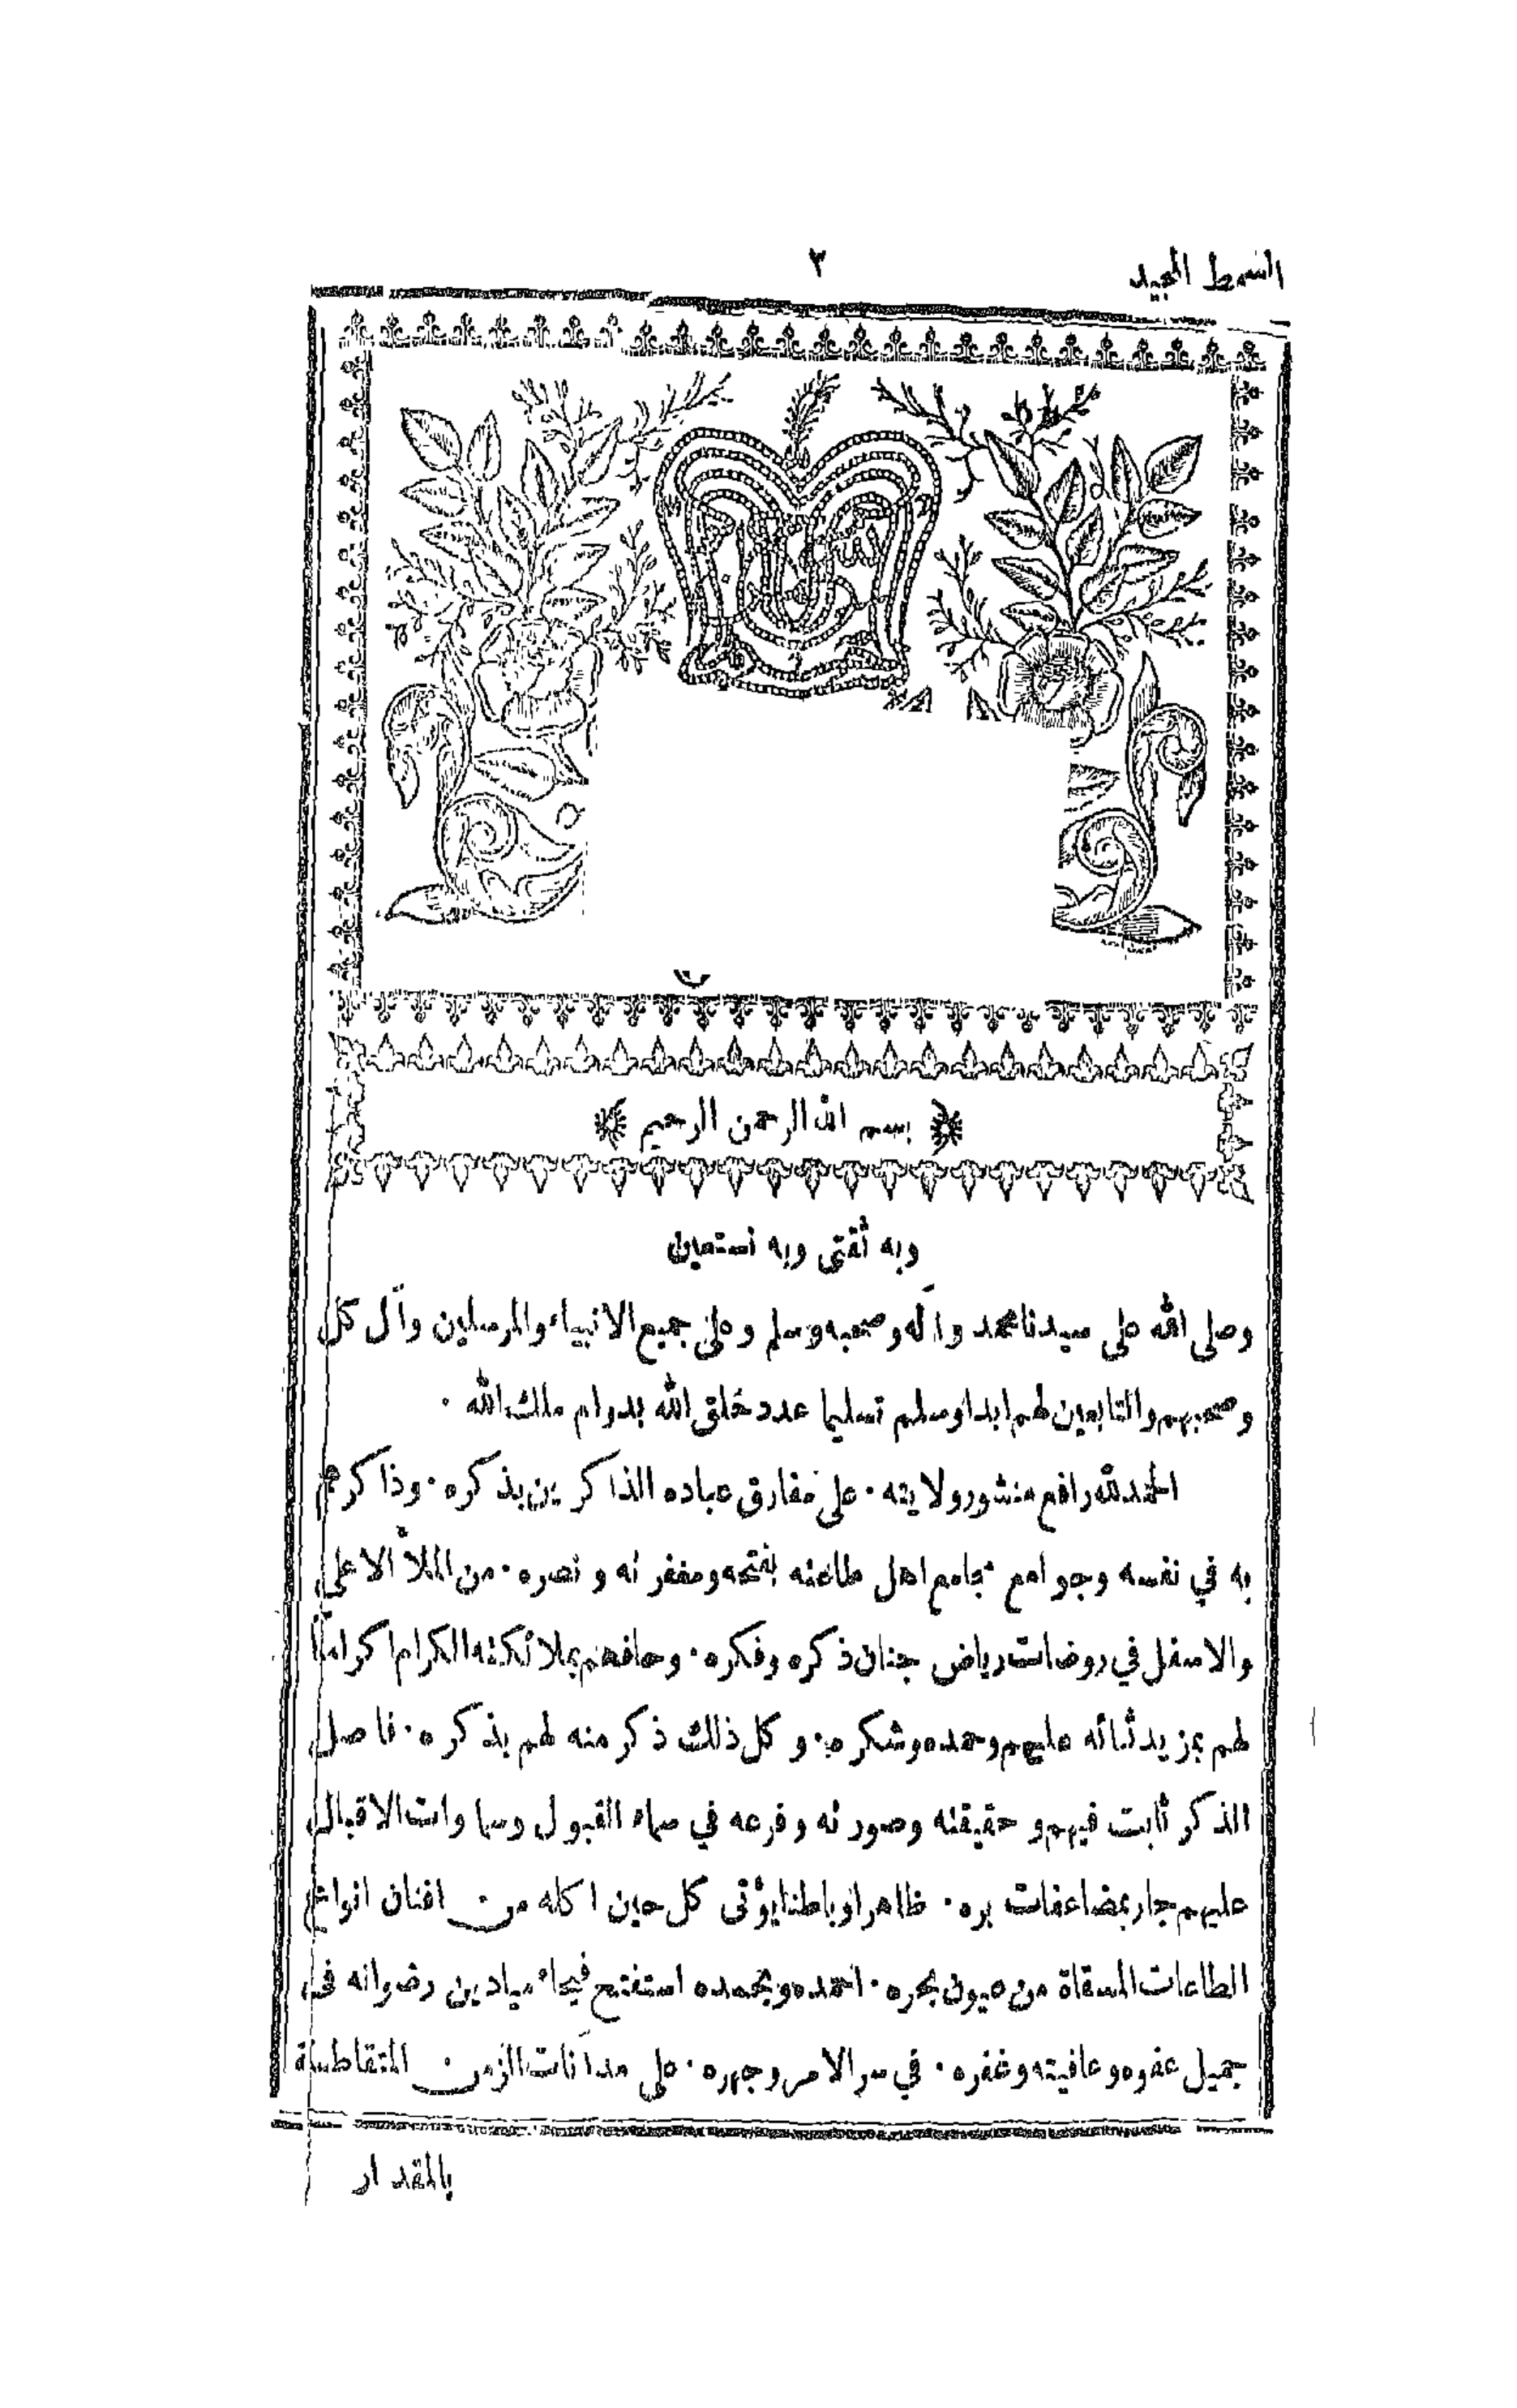 السمط المجيد
٣
بسم الله الرحمن الرحيم
وبه ثقتى وبه نستعين
وصلى الله على سيدنا محمد وآله وصحبه وسلم وعلى جميع الانبياء والمرسلين وآل كل
وصحبهم والتابعين لهم ابدا وسلم تسليما عدد خلق الله بدوام ملك الله ٠
الحمد لله رافع منشور ولايته ٠ على مفارق عباده الذاكرين بذكره ٠ وذاكرهم
به في نفسه وجوامع مجامع اهل طاعته بفتحه ومغفرته ونصره ٠ من الملأ الاعلى
والاسفل في روضات رياض جنان ذكره وفكره ٠ وحافهم بملائكته الكرام اكراما
لهم بمزيد ثنائه عليهم وحمده وشكره ٠ وكل ذلك ذكر منه لهم بذكره ٠ فاصل
الذكر ثابت فيهم وحقيقته وصورته وفرعه في سماء القبول وسماوات الاقبال
عليهم جار بمضاعفات بره ٠ ظاهرا وباطنا يؤتى كل حين اكله من افنان انواع
الطاعات المسقاة من عيون بحره ٠ احمده وبحمده استفتح فيحاء ميادين رضوانه في
جميل عفوه وعافيته وغفره ٠ في سر الامر وجهره ٠ على مدا آنات الزمن ٠
بالمقدار